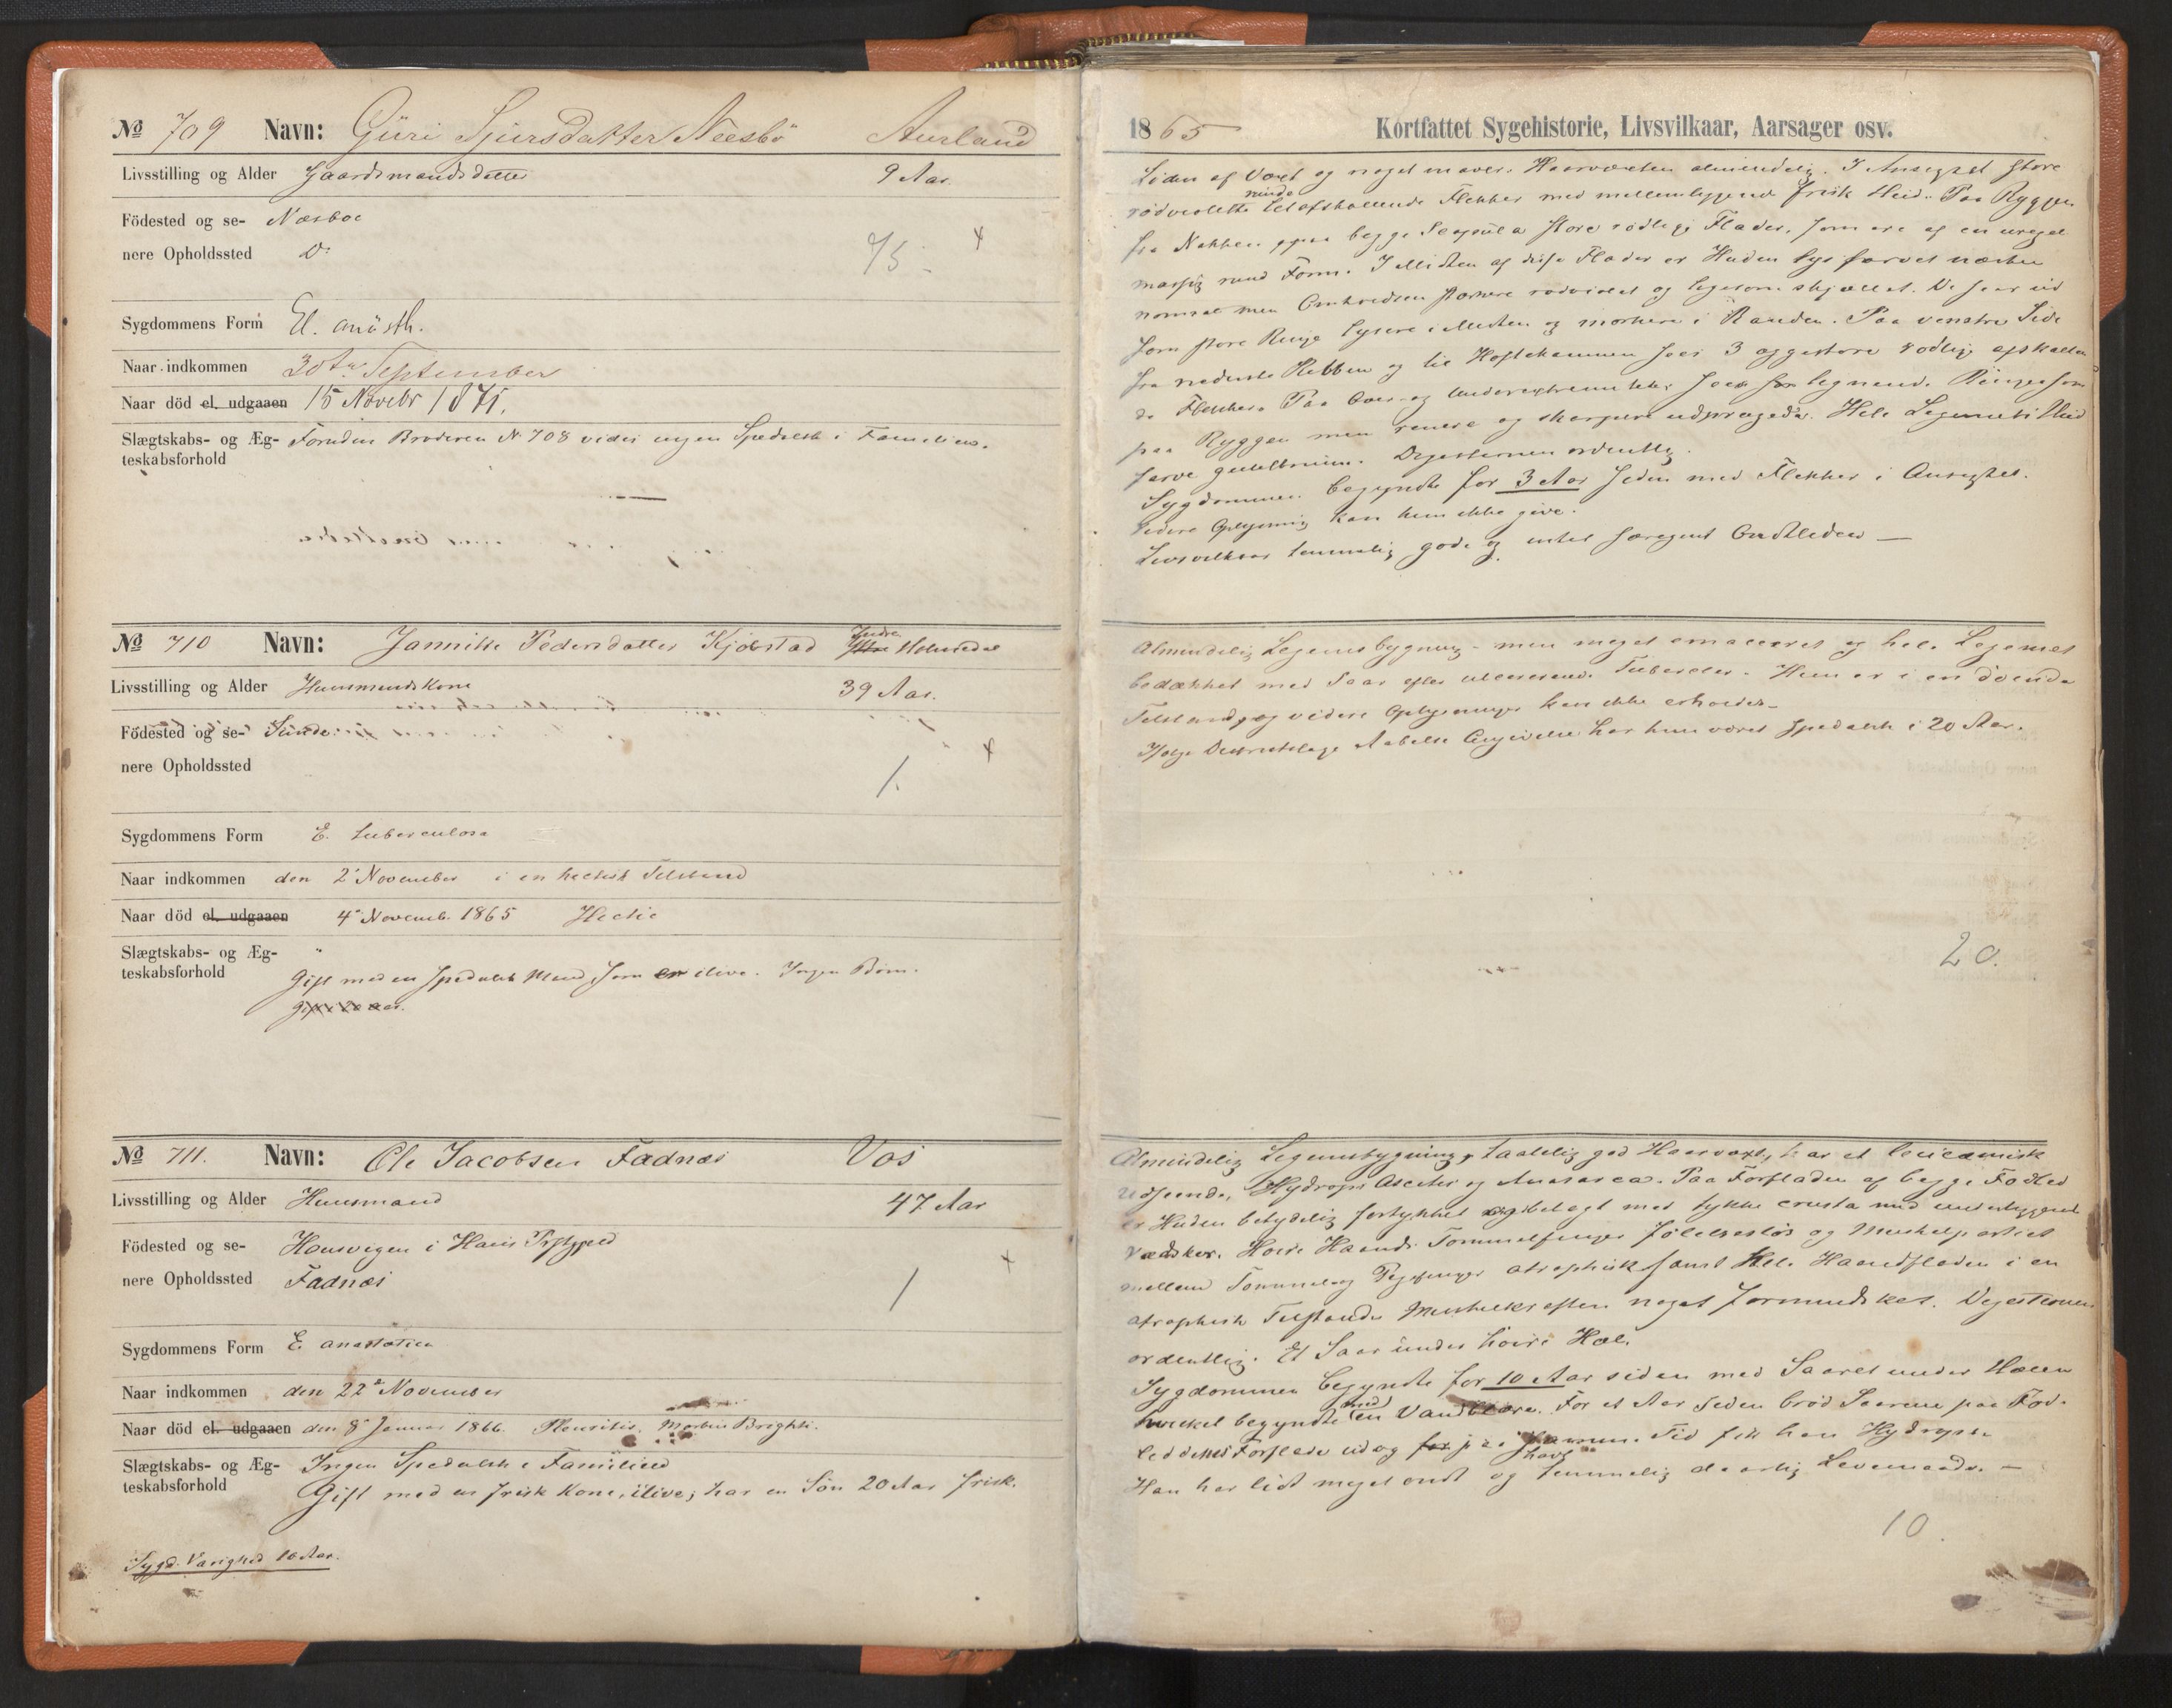 No 709 Navn: Güri Sjursdatter Neesbö Aurland
Livsstilling og Alder Gaardmandsdatter 9 Aar.
Födested og se- Næsboe
nere Opholdssted Do
Sygdommens Form El. anästh.
Naar indkommen 30te September
Naar död el. udgaaen 15 Novebr 1871.
Slægtskabs- og Æg- Foruden Broderen N. 708 vides ingen Spedalsk i Familien.
teskabsforhold
No 710 Navn: Jannike Pedersdatter Kjöbstad Indre Holmedal
Livsstilling og Alder Huusmandskone 39 Aar.
Födested og se- Sunde
nere Opholdssted
1.
Sygdommens Form E. tuberculosa
Naar indkommen den 2' November i en hectisk Tilstand
Naar död el. udgaaen 4' Novemb. 1865 Hectic
Slægtskabs- og Æg-
teskabsforhold Gift med en spedalsk Mand, som er ilive. Ingen Börn.
No 711. Navn: Ole Jacobsen Fadnæs Vos
Livsstilling og Alder Huusmand 47 Aar
Födested og se- i Haus
nere Opholdssted Fadnæs
1
Sygdommens Form E.
Naar indkommen den 22d November
Naar död el. udgaaen den 8' Januar 1866. Pleuritis, Morbus Brighti.
Slægtskabs- og Æg- Ingen Spedalsk i Familien
teskabsforhold Gift med en frisk Kone, ilive; har en Sön 20 Aar frisk.
Sygd. Varighed 10 Aar.
1865 Kortfattet Sygehistorie, Livsvilkaar, Aarsager osv.
Liden af Væxt og noget mager. Haarvæxten almindelig. I Ansigtet store
rödviolette runde Flekker med mellemliggende frisk Hud. Paa Ryggen
fra Nakken begge Scapula store rödlige Flader, som ere af en uregel
mæssig rund Form. I Midten af disse Flader er Huden lys farvet næsten
normal men Omkredsen stærkere rödviolet og ligesom skjællet. De seer ud
som store Ringe lysere i Midten og mörkere i Randen. Paa venstre Side
fra nederste Ribben og til Hoftekammen sees 3 æggestore rödlige afskallen
de Flekker. Paa Over- og Underextremiteter sees lignende Ringe som
paa Ryggen men renere og skarpere udprægede. Hele Legemets Hud
farve guulbruun. Digestionen ordentlig.
Sygdommen begyndte for 3 Aar siden med Flekker i Ansigtet.
videre Oplysning kan hun ikke give.
Livsvilkaar temmelig gode og intet særegent Ondtlidende —
Almindelig Legemsbygning - men meget emacieret og hele Legemet
bedækket med Saar efter ulcererende Tuberkler. Hun er i en döende
Tilstand, og videre Oplysninger kan ikke erholdes.
Ifölge Districtslæge Angivelse har hun været spedalsk i 20 Aar.
20.
Almindelig Legemsbygning, taalelig god Haarvæxt, har et leucæmisk
Udseende, Hydrops Ascites og Anasarca. Paa Forfladen af begge Fodled
er Huden betydelig fortykket og belagt med tykke crusta med underliggende
Vædsker. Höire Haands Tommelfinger fölelseslös og Muskelpartiet
mellem Tommel og Pegefinger atrophisk samt hele Haandfladen i en
atrophisk Tilstand. Muskelkraften noget formindsket. Digestionen
ordentlig. Et Saar under höire Hæl.
Sygdommen begyndte for 10 Aar siden med Saaret under Hælen
hvilket begyndte med en Vandblære. For et Aar siden bröd Saarene paa Fod-
leddenes Forflade ud og paa samme Tid fik han Hydrops.
Han har lidt meget ondt og havt temmelig daarlig Levemaade. —
10.